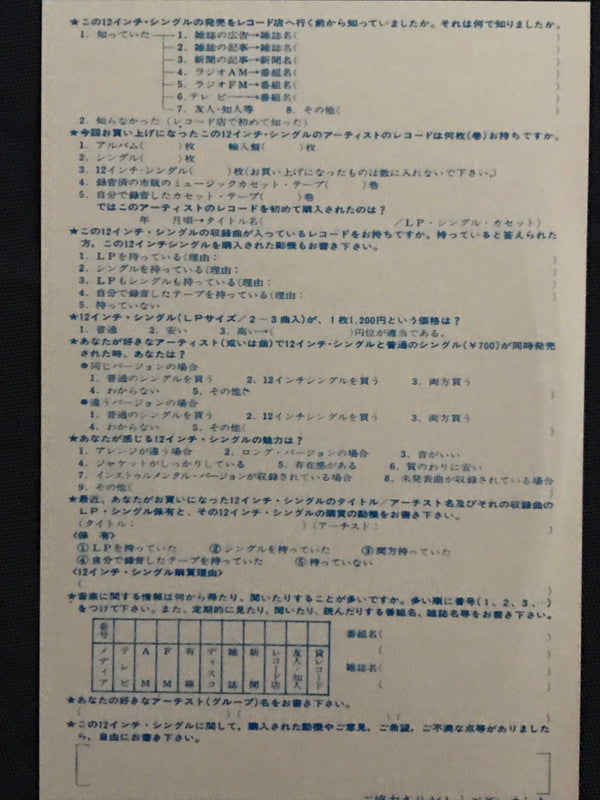 ★この12インチ・シングルの発売をレコード店へ行く前から知っていましたか。それは何で知りましたか。
1. 知っていた
1. 雑誌の広告→雑誌名(　　)
2. 雑誌の記事→雑誌名(　　)
3. 新聞の記事→新聞名(　　)
4. ラジオAM→番組名(　　)
5. ラジオFM→番組名(　　)
6. テレビ→番組名(　　)
7. 友人・知人等　8. その他(　　)
2. 知らなかった (レコード店で初めて知った)
★今回お買い上げになったこの12インチ・シングルのアーティストのレコードは何枚(巻)お持ちですか。
1. アルバム(　　)枚　輸入盤(　　)枚
2. シングル(　　)枚
3. 12インチ・シングル(　　)枚(お買い上げになったものは数に入れないで下さい。)
4. 録音済の市販のミュージックカセット・テープ(　　)巻
5. 自分で録音したカセット・テープ(　　)巻
ではこのアーティストのレコードを初めて購入されたのは？
年　月頃→タイトル名(　　／LP・シングル・カセット)
★この12インチ・シングルの収録曲が入っているレコードをお持ちですか。持っていると答えられた
方，この12インチシングルを購入された動機もお書き下さい。
1. LPを持っている(理由：　　)
2. シングルを持っている(理由：　　)
3. LPもシングルも持っている(理由：　　)
4. 自分で録音したテープを持っている(理由：　　)
5. 持っていない
★12インチ・シングル(LPサイズ／2〜3曲入)が、1枚1,200円という価格は？
1. 普通　2. 安い　3. 高い→(　　)円位が適当である。
★あなたが好きなアーティスト(或いは曲)で12インチ・シングルと普通のシングル(¥700)が同時発売
された時、あなたは？
●同じバージョンの場合
1. 普通のシングルを買う　2. 12インチシングルを買う　3. 両方買う
4. わからない　5. その他(
●違うバージョンの場合
1. 普通のシングルを買う　2. 12インチシングルを買う　3. 両方買う
4. わからない　5. その他(　　)
★あなたが感じる12インチ・シングルの魅力は？
1. アレンジが違う場合　2. ロング・バージョンの場合　3. 音がいい
4. ジャケットがしっかりしている　5. 存在感がある　6. 質のわりに安い
7. インストゥルメンタル・バージョンが収録されている場合　8. 未発表曲が収録されている場合
9. その他(　　)
★最近、あなたがお買いになった12インチ・シングルのタイトル／アーチスト名及びその収録曲の
LP・シングル保有と、その12インチ・シングルの購買の動機をお書き下さい。
(タイトル：　　)(アーチスト：　　)
〈保　有〉
①LPを持っていた　②シングルを持っていた　③両方持っていた
④自分で録音したテープを持っていた　⑤持っていない
〈12インチ・シングル購買理由〉
(　　)
★音楽に関する情報は何から得たり、聞いたりすることが多いですか。多い順に番号(1、2、3、…)
をつけて下さい。また、定期的に見たり、聞いたり、読んだりする番組名、雑誌名等をお書き下さい。
番号
メディア　テレビ　AM　FM　有線　ディスコ　雑誌　新聞　レコード店　友人・知人　貸レコード
番組名(　　)
(　　)
雑誌名(　　)
(　　)
★あなたの好きなアーティスト(グループ)名をお書き下さい。
(　　)(　　)(　　)
★この12インチ・シングルに関して，購入された動機やご意見，ご希望，ご不満な点等がありました
ら、自由にお書き下さい。